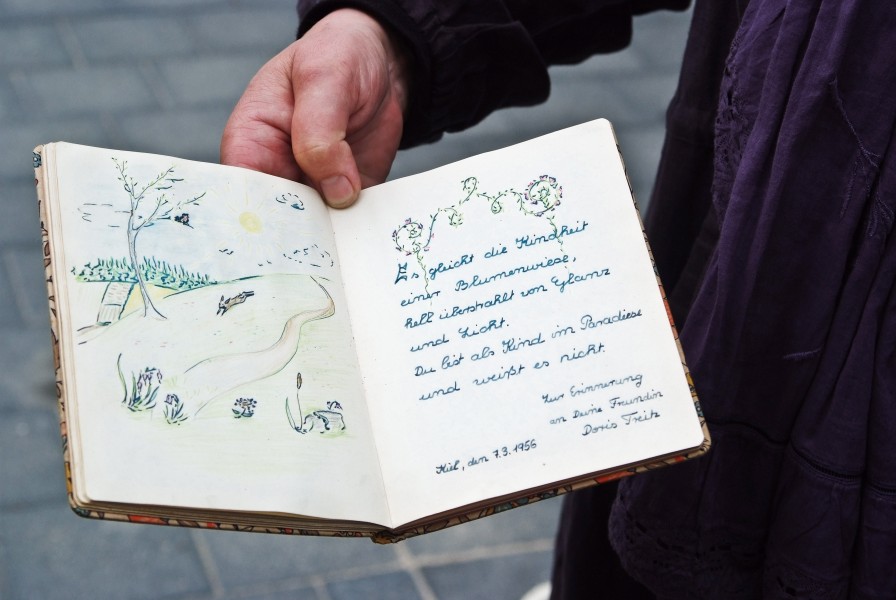 Es gleicht die Kindheit
einer Blumenwiese,
hell überstrahlt von Glanz
und Licht.
Du bist als Kind im Paradiese
und weißt es nicht.
Zur Erinnerung
an Deine Freundin
Doris Treitz
Kiel, den 7.3.1956